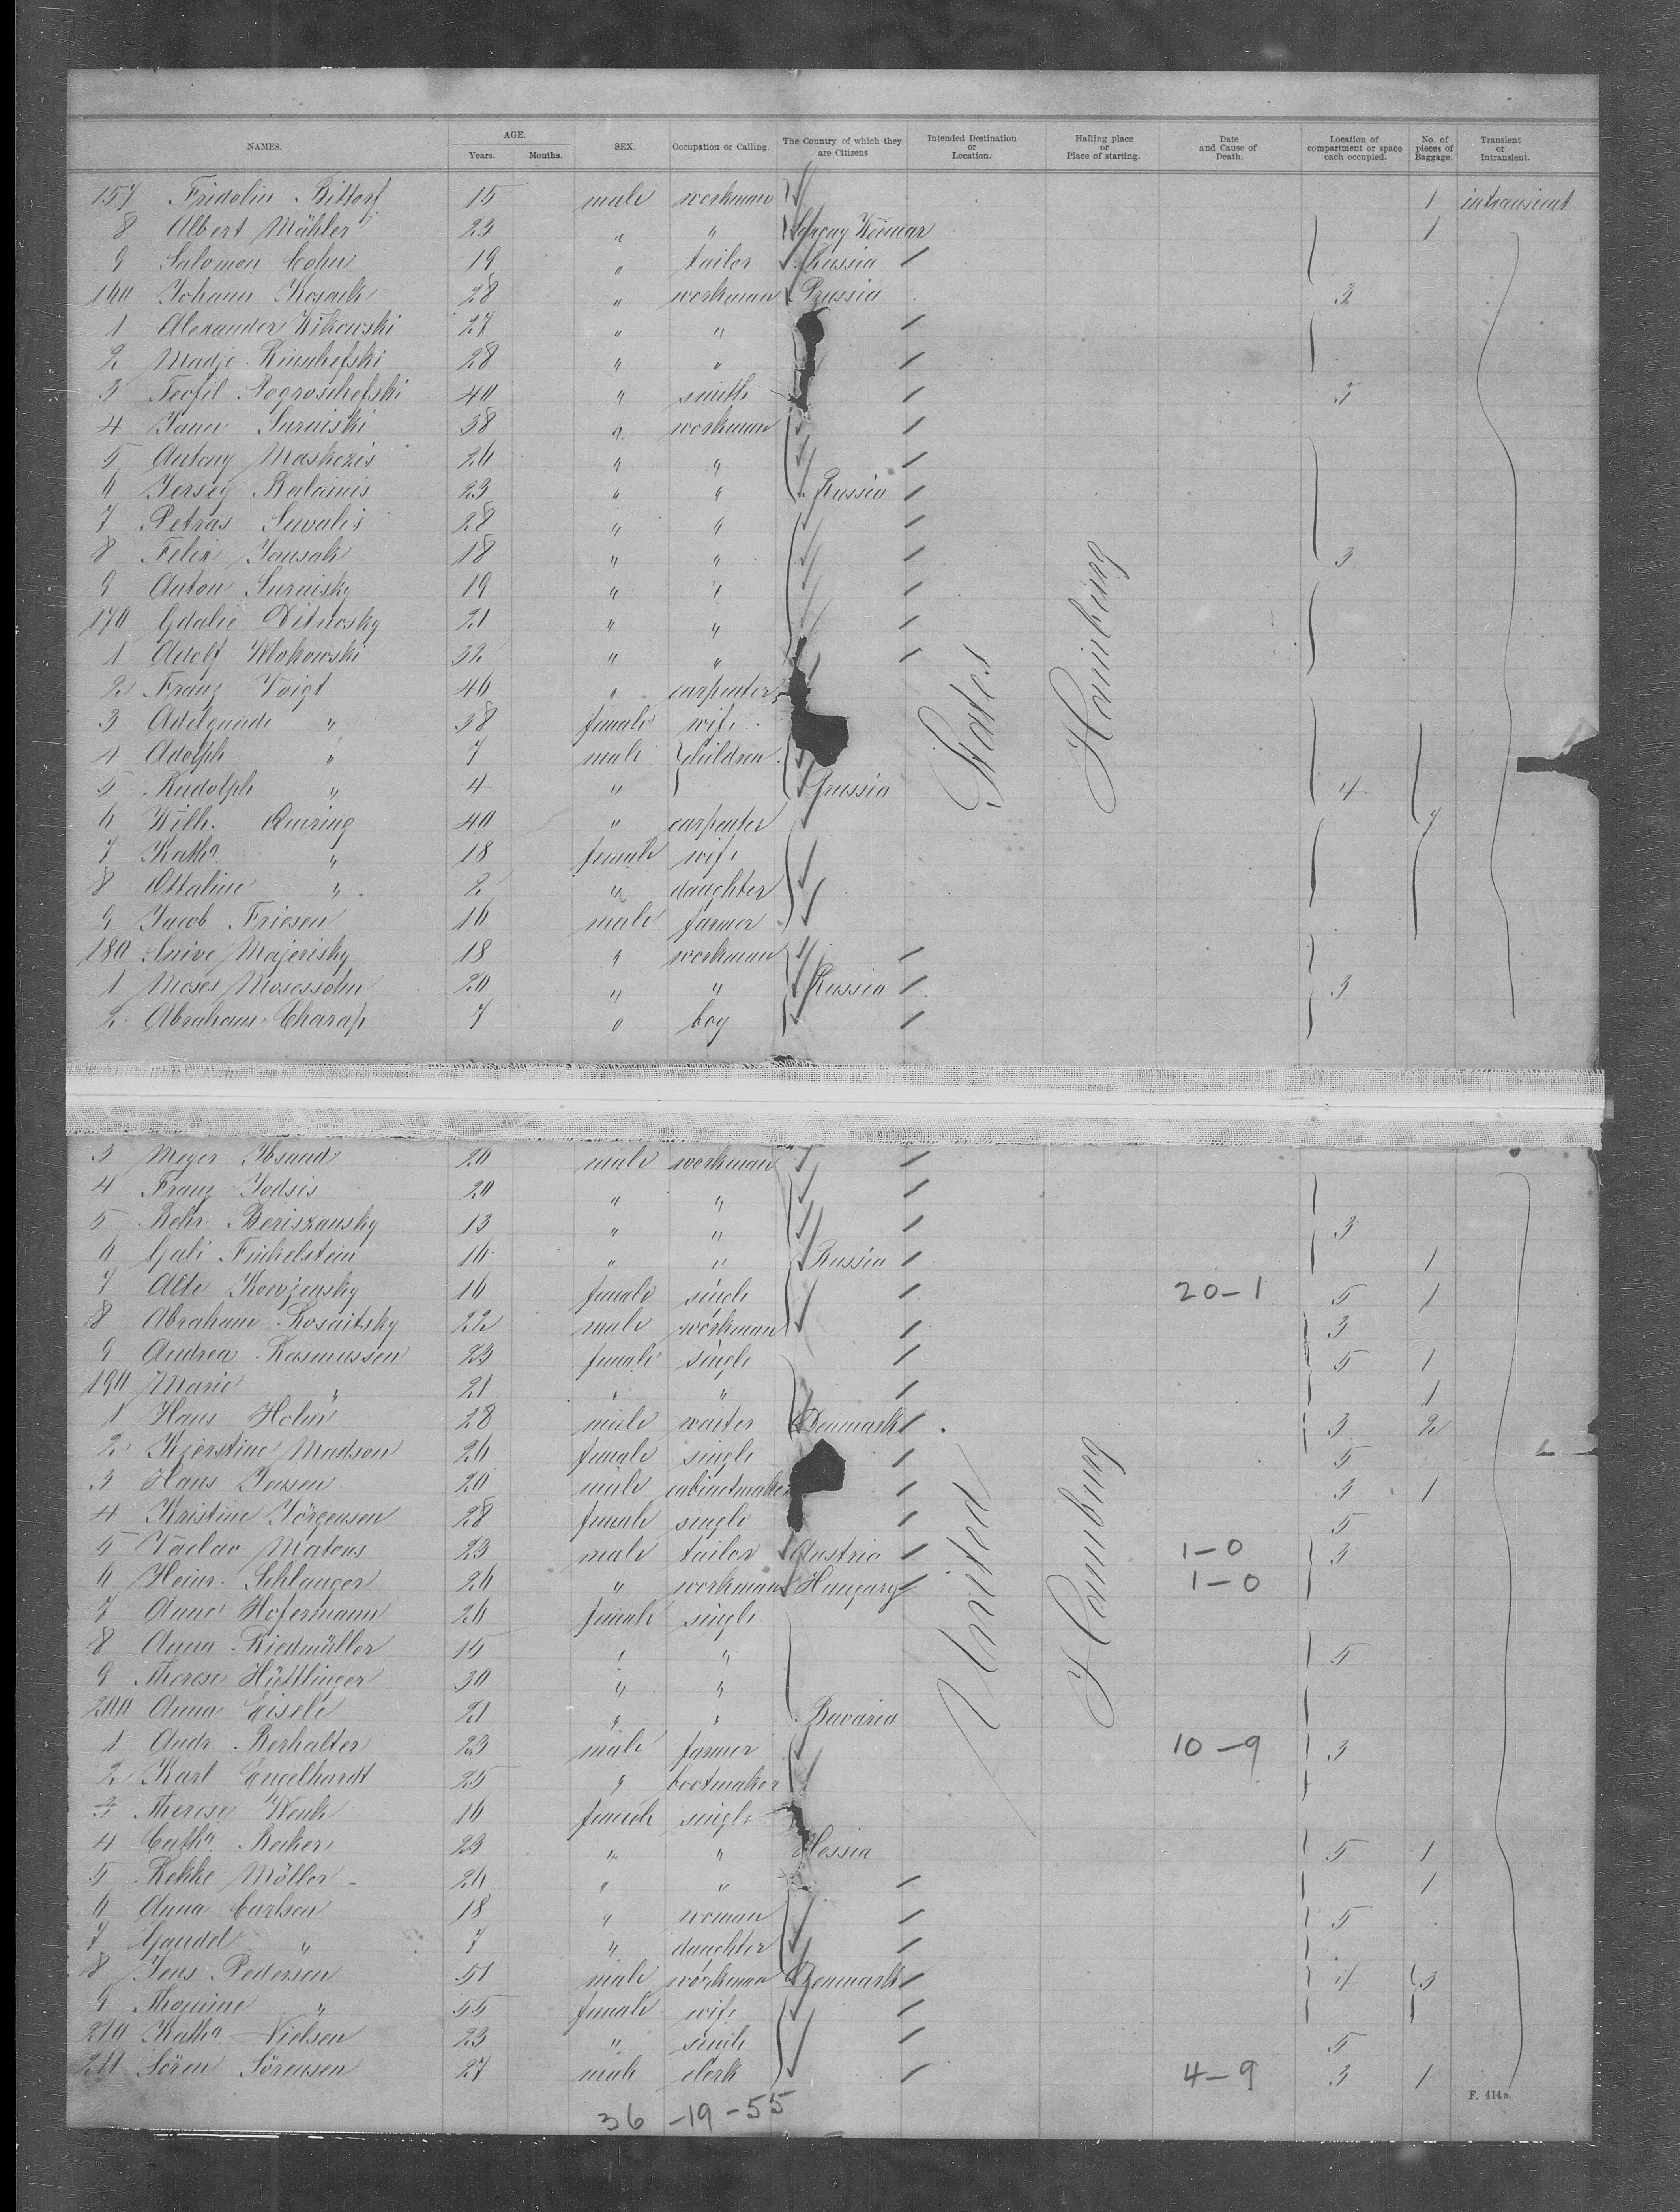 NAMES. AGE. Years. Months. SEX. Occupation or Calling. The Country of which they are Citizens Intended Destination or Location. Hailing place or Place of starting. Date and Cause of Death. Location of compartment or space each occupied. No. of pieces of Baggage. Transient or Intransient.
157 Fridolin Bittorf 15 male workman 1 intransient
8 Albert Mähler 23 " " Weimar 1
9 Salomon Cohn 19 " tailor Russia
160 Johann Kosack 28 " workman Prussia 3
1 Alexander Wikowski 27 " "
2 Madje 28 " "
3 Teofil Pogroschefski 40 " smith 3
4 Surniski 38 " workman
5 Antony Maskezis 26 " "
6 Jersey Kalainis 23 " " Russia
7 Petras Suvalis 28 " "
8 Felix Jansak 18 " " 3
9 Anton Surnisky 19 " "
170 Gdalie Ditnosky 21 " "
1 Adolf Klokowski 32 " "
2 Franz Voigt 46 " carpenter
3 Adelgunde " 38 female wife
4 Adolph " 7 male children
5 Rudolph " 4 " Prussia 4
6 Wilh. Quiring 40 " carpenter 7
7 Kath. " 18 female wife
8 Ottaline " 2 " daughter
9 Jacob Friesen 16 male farmer
180 Majerisky 18 " workman
1 Moses Mosessohn 20 " " Russia 3
2 Abraham Charap 7 " boy
States
Hamburg
3 Meyer 20 male workman
4 Franz Jodsis 20 " "
5 Behr Beriszansky 13 " " 3
6 Gali Finkelstein 16 " " Russia 1
7 Alte 16 female single 20-1 5 1
8 Abraham Rosaitsky 22 male workman 3
9 Andrea Rasmussen 23 female single 5 1
190 Marie " 21 " " 1
1 Hans Holm 28 male waiter Denmark 3 2
2 Kjerstine Madsen 26 female single 5
3 Hans Jensen 20 male cabinetmaker 3 1
4 Kristine Jörgensen 28 female single 5
5 Vaclav Matous 23 male tailor Austria 1-0 3
6 Heinr. Schlanger 26 " workman Hungary 1-0
7 Anna Hofermann 26 female single
8 Anna Riedmüller 15 " " 5
9 Therese Hüttlinger 30 " "
200 Anna Eisele 21 " " Bavaria
1 Andr. Berhalter 23 male farmer 10-9 3
2 Karl Engelhardt 25 " bootmaker
3 Therese Wenk 16 female single
4 Cath. Becker 23 " " Hessia 5 1
5 Rekke Möller 26 " " 1
6 Anna Carlsen 18 " woman 5
7 " 7 " daughter
8 Jens Pedersen 51 male workman Denmark 4 3
9 Thomine " 55 female wife
210 Kath. Nielsen 23 " single 5
211 Sören Sörensen 27 male clerk 4-9 3 1
United
Hamburg
36 -19-55
F. 414a.